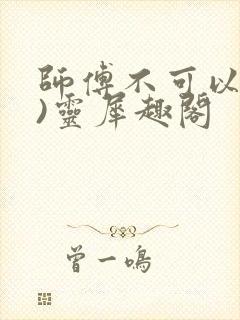 師傅不可以
)靈犀趣閣
曾一鳴